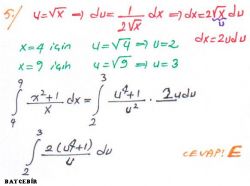 5. u=√x ⇒ du= 1/(2√x) dx ⇒ dx=2√x du
u
x=4 için u=√4 ⇒ u=2 dx=2udu
x=9 için u=√9 ⇒ u=3
∫₄⁹ (x²+1)/x dx = ∫₂³ (u⁴+1)/u² · 2udu
∫₂³ 2(u⁴+1)/u du CEVAP: E
BAYCEBİR